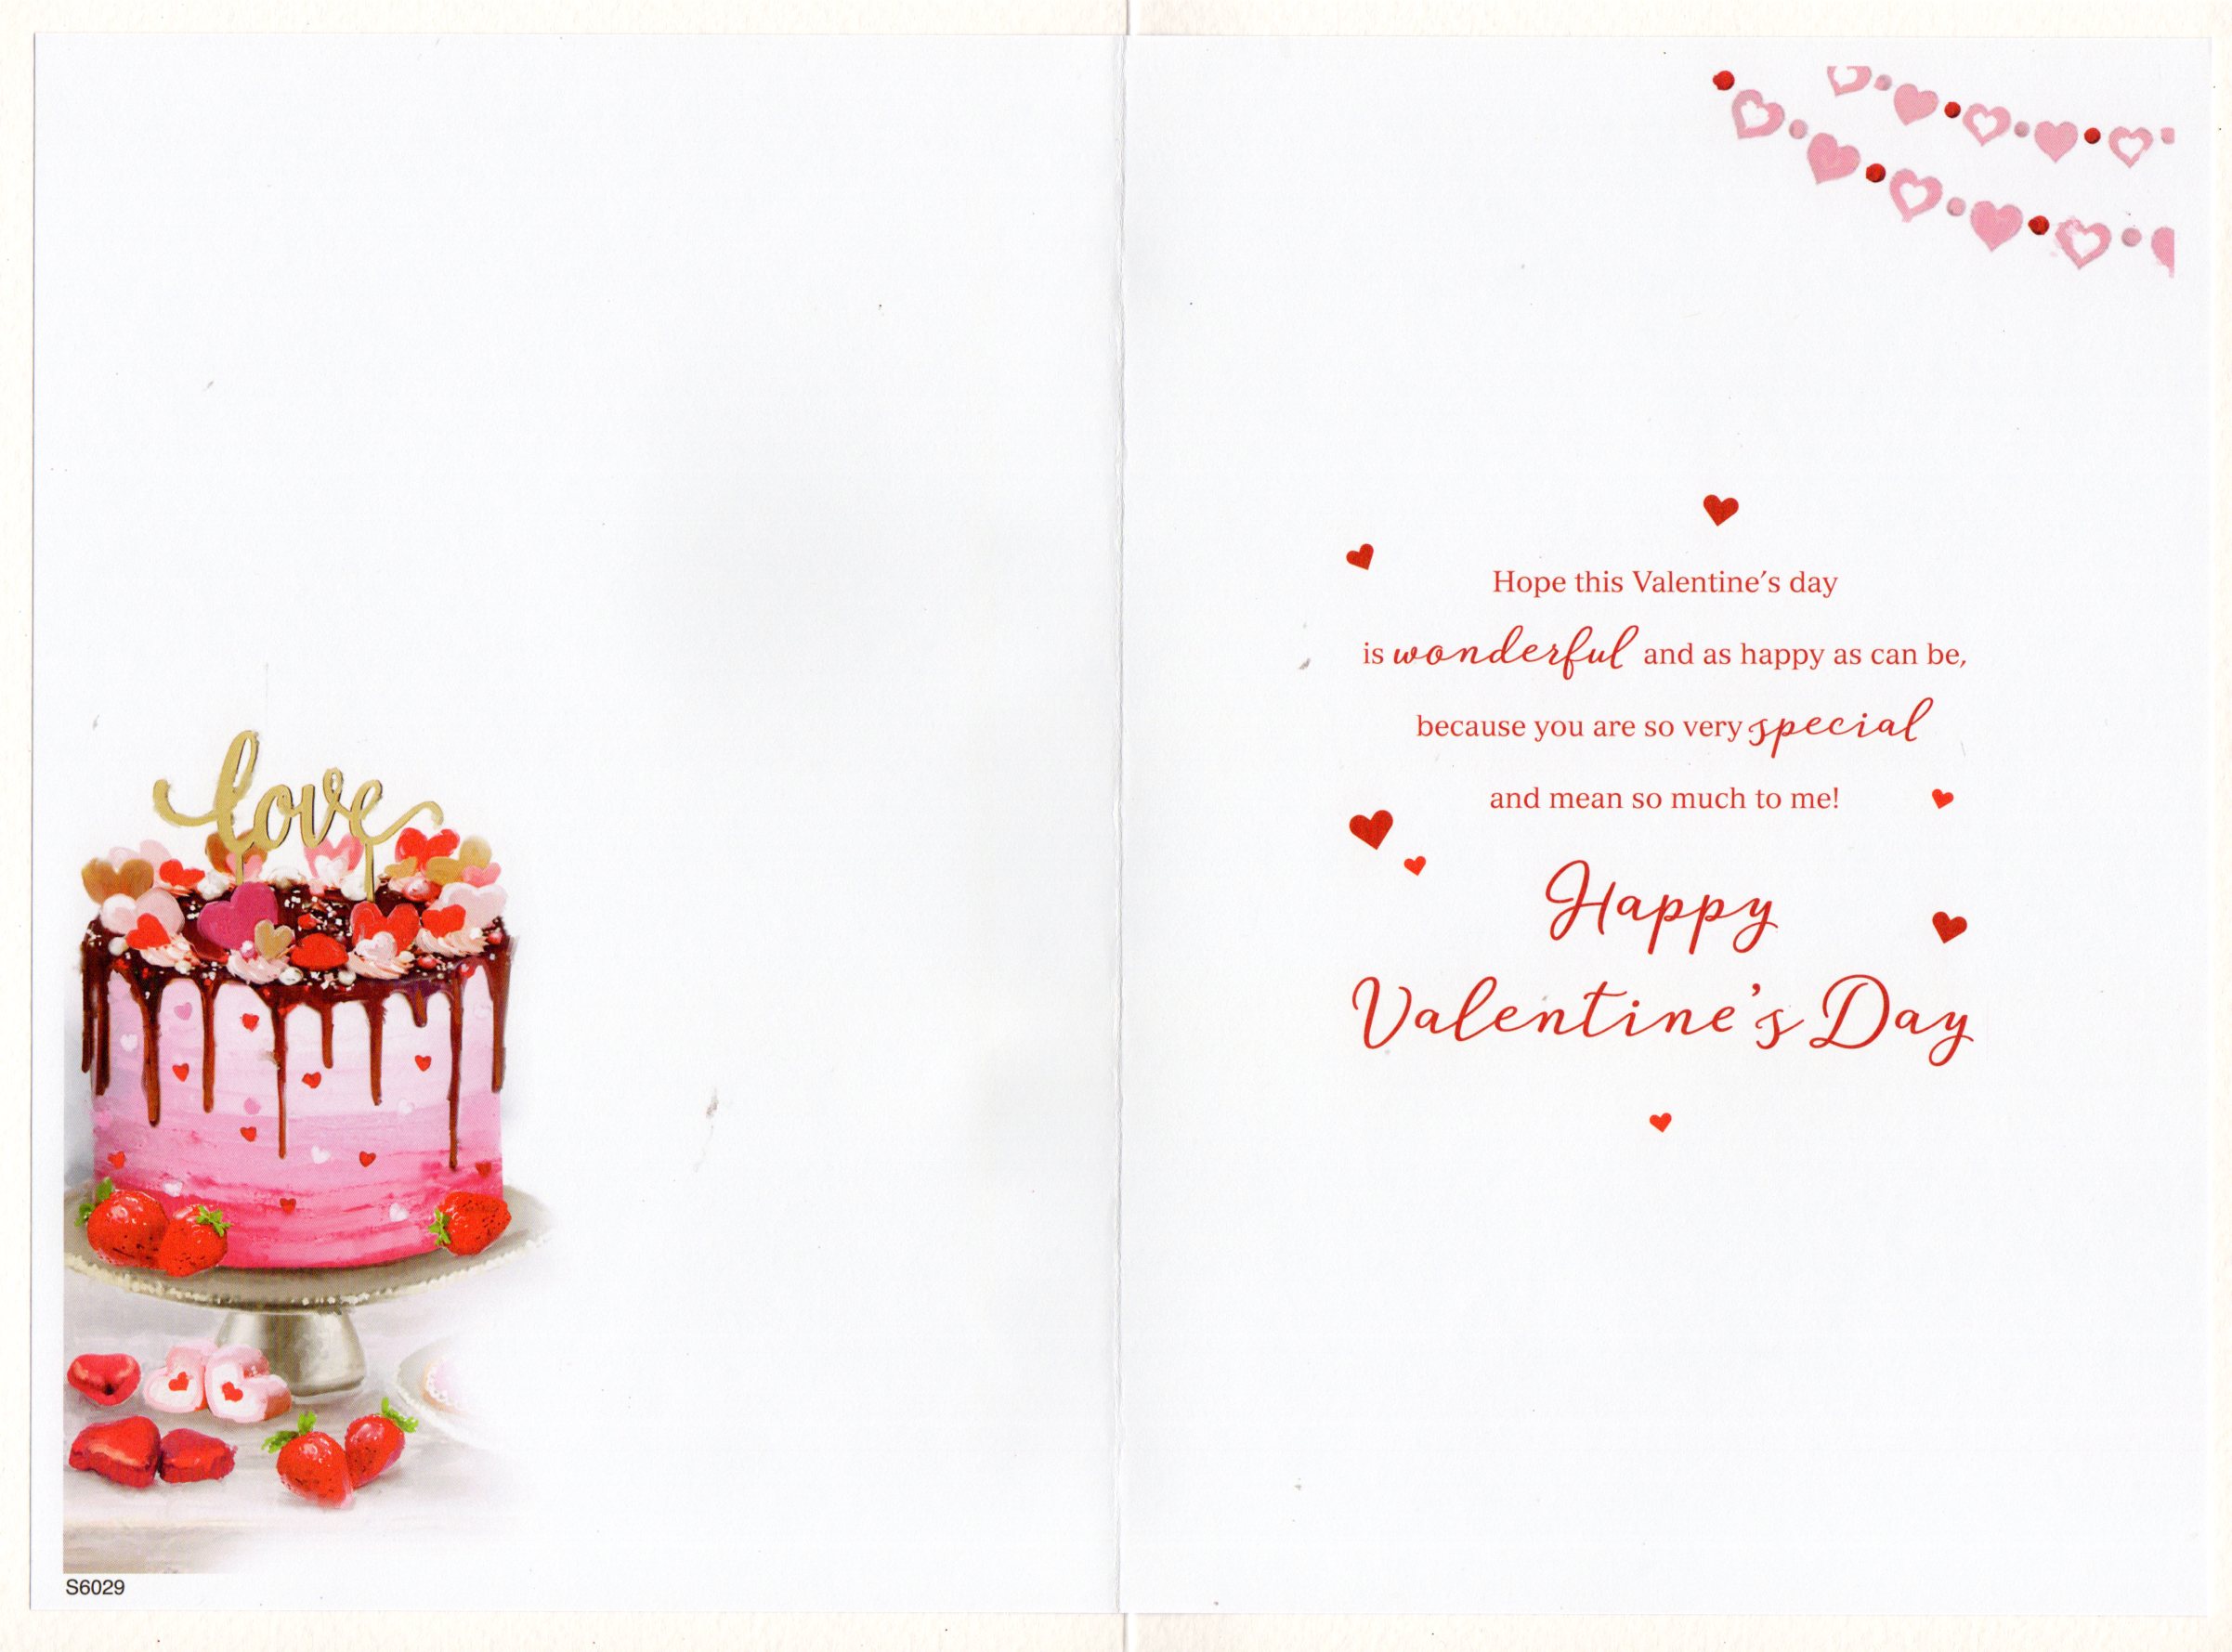 love
S6029
Hope this Valentine's day
is wonderful and as happy as can be,
because you are so very special
and mean so much to me!
Happy
Valentine's Day